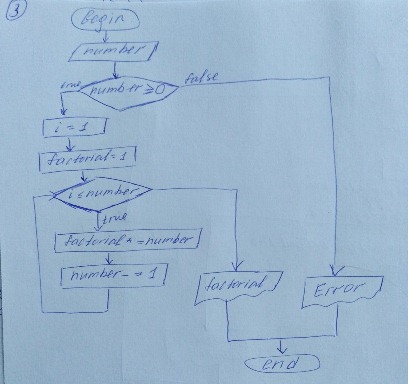 3
begin
number
number ≥ 0
true
false
i = 1
factorial = 1
i ≤ number
true
factorial * = number
number - = 1
factorial
Error
end